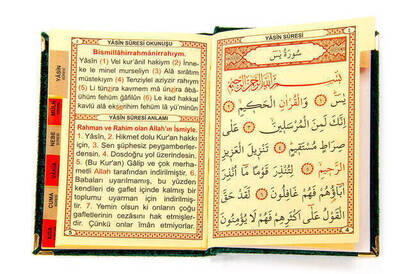 YÂSİN SÛRESİ OKUNUŞU
Bismillâhirrahmânirrahıym.
Yâsin (1) Vel kur'ânil hakiym (2) İnne-
ke le minel murseliyn (3) Alâ sırâtım
müstekıym (4) Tenziylel aziyzir rahıym
(5) Li tünzira kavmem mâ ünzira âbâ-
ühüm fehüm ğâfilûn (6) Le kad hakkal
kavlü alâ ekserihim fehüm lâ yü'minûn
YÂSİN SÛRESİ ANLAMI
Rahman ve Rahim olan Allah'ın İsmiyle.
1. Yâsin, 2. Hikmet dolu Kur'an hakkı
için, 3. Sen şüphesiz peygamberler-
densin. 4. Dosdoğru yol üzerindesin.
5. (Bu Kur'an) Gâlip ve çok merha-
metli Allah tarafından indirilmiştir. 6.
Babaları uyarılmamış, bu yüzden
kendileri de gaflet içinde kalmış bir
toplumu uyarman için indirilmiş-
tir. 7. Yemin olsun ki onların çoğu
gafletlerinin cezasını hak etmişler-
dir. Çünkü onlar îman etmiyorlar.
YÂSİN
MÜLK
NEBE
VAKIA
CUMA
YÂSİN SÛRESİ
سُورَةُ يٰسٓ
بِسْمِ اللّٰهِ الرَّحْمٰنِ الرَّحِيمِ
يٰسٓ ۝ وَالْقُرْاٰنِ الْحَكِيمِ ۝
اِنَّكَ لَمِنَ الْمُرْسَلِينَ ۝ عَلٰى
صِرَاطٍ مُسْتَقِيمٍ ۝ تَنْزِيلَ الْعَزِيزِ
الرَّحِيمِ ۝ لِتُنْذِرَ قَوْمًا مَا اُنْذِرَ
اٰبَاؤُهُمْ فَهُمْ غَافِلُونَ ۝ لَقَدْ حَقَّ
الْقَوْلُ عَلٰى اَكْثَرِهِمْ فَهُمْ لَا يُؤْمِنُونَ